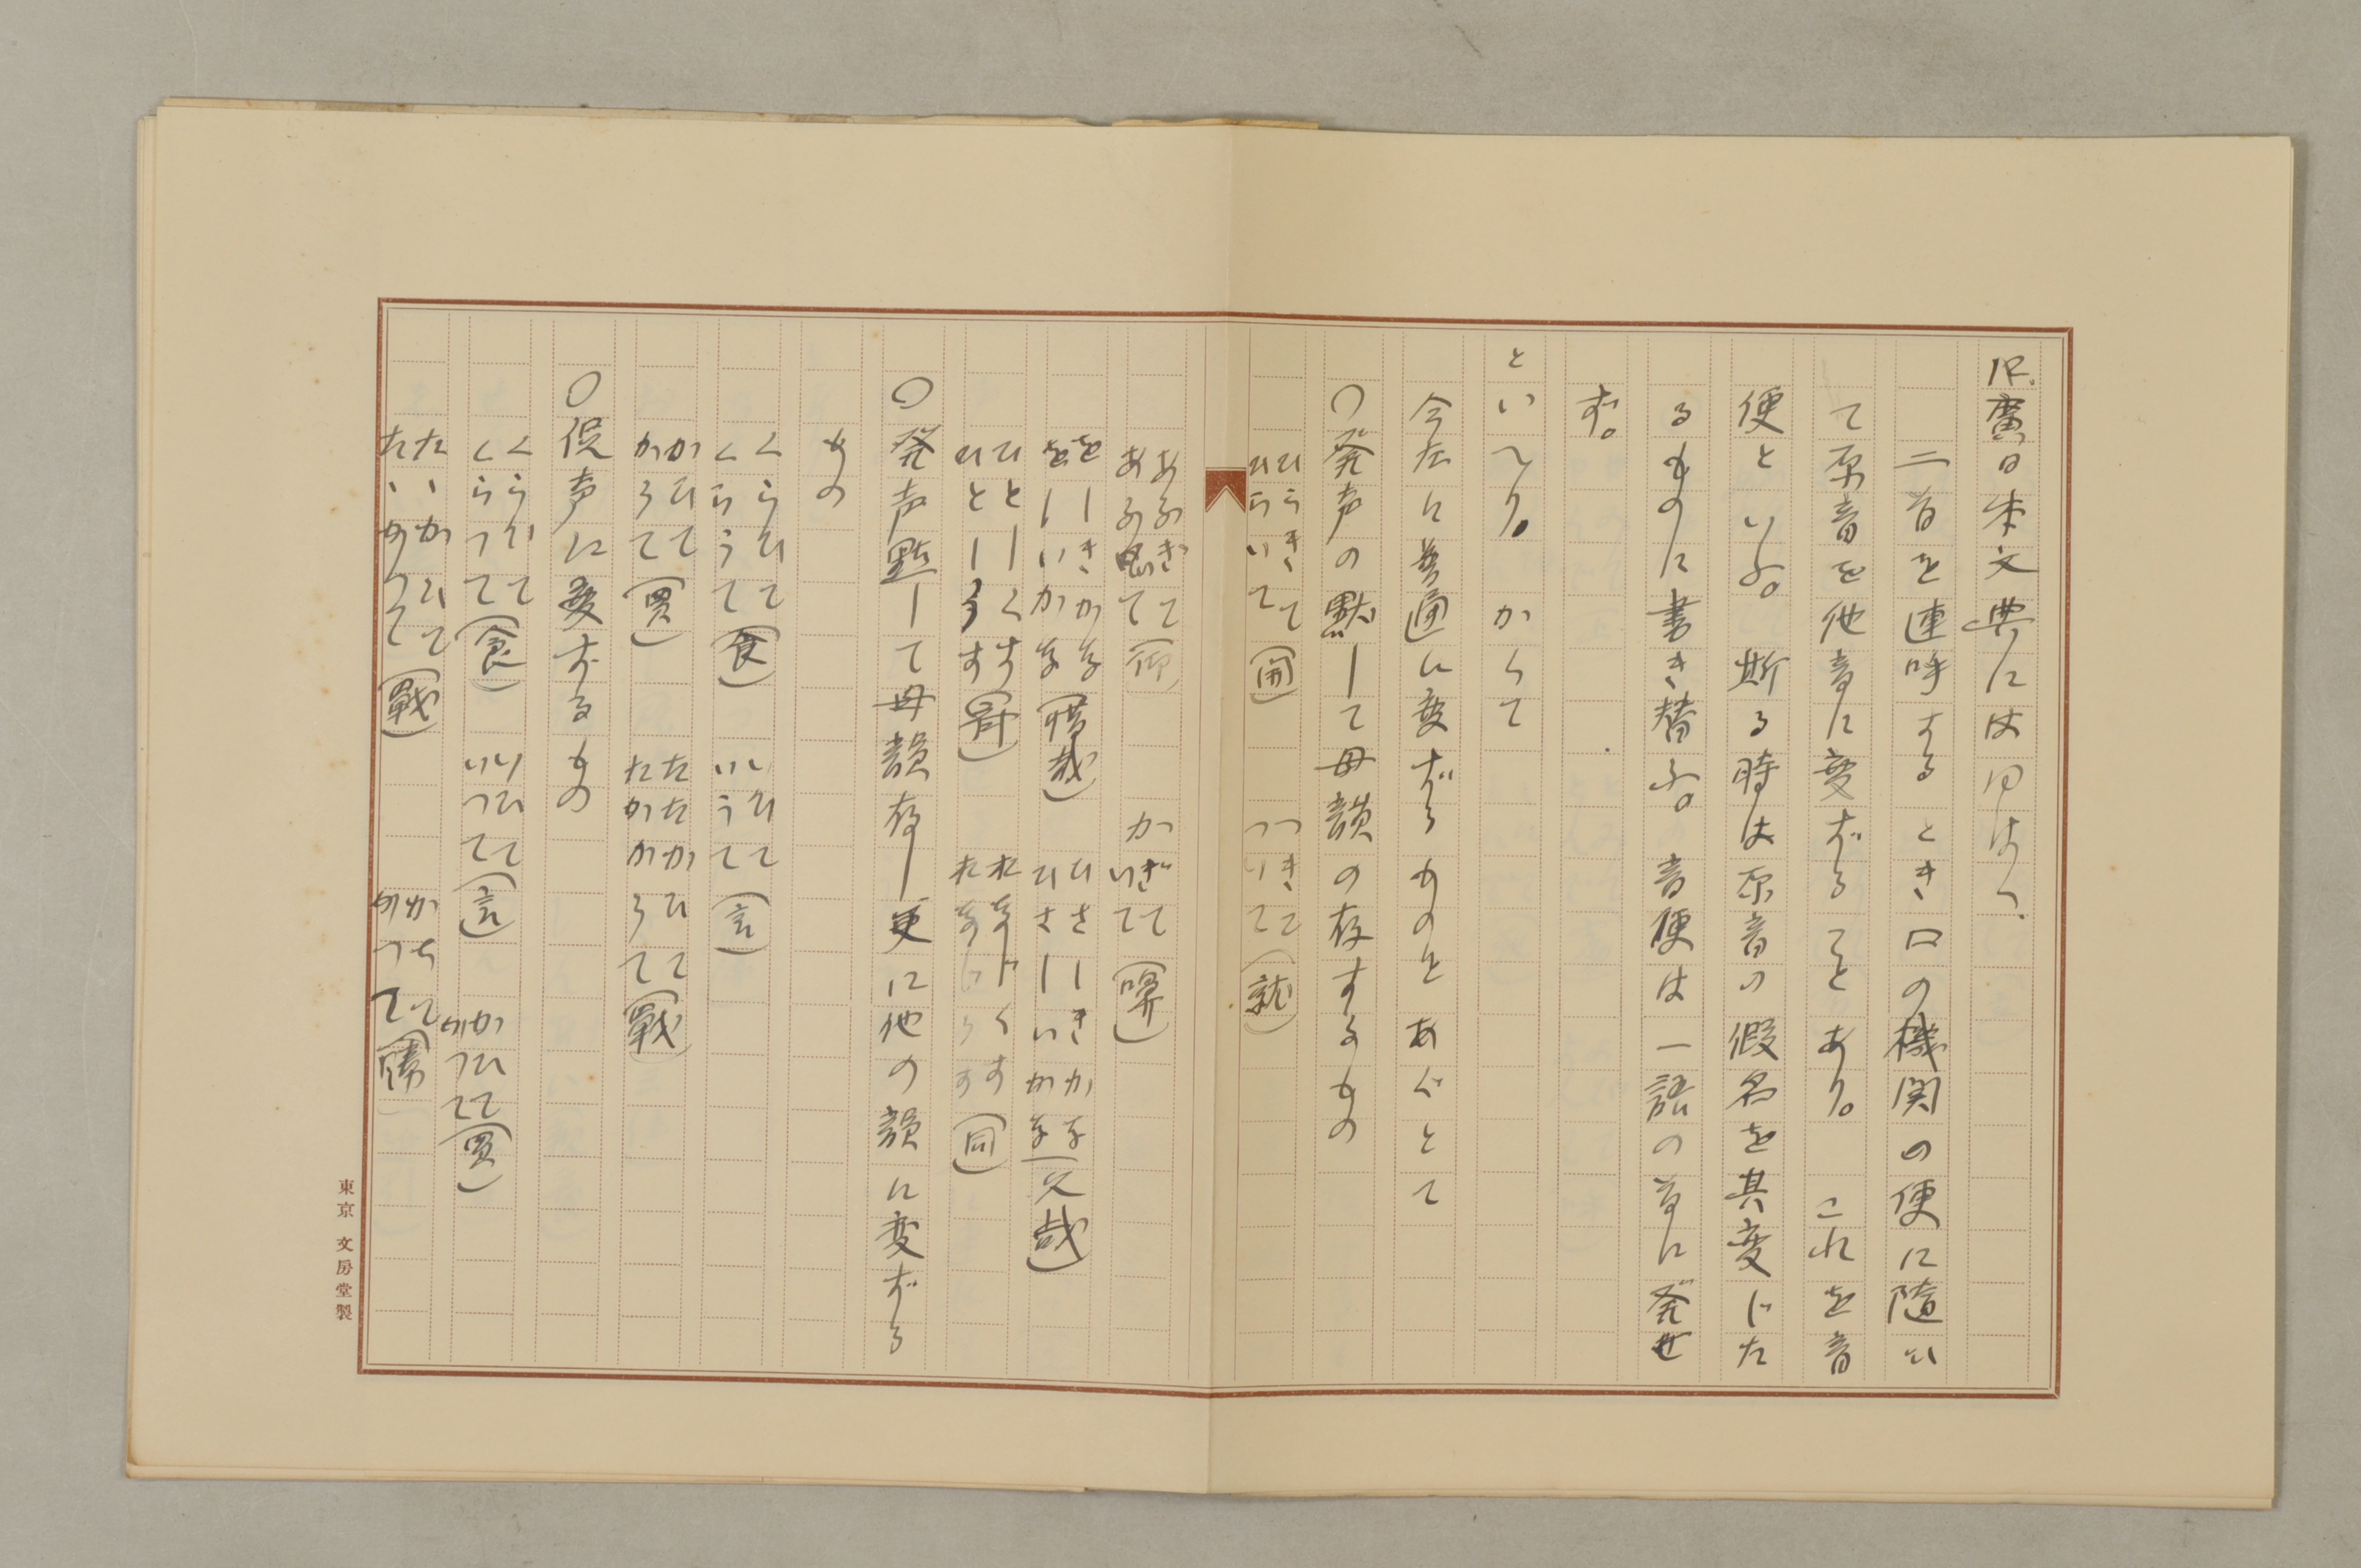 廣日本文典にはいはく、
二音を連呼するとき口の機関の便に随ひ
て原音を他音に変ずることあり。 これを音
便といふ。 斯る時は原音の假名を其変じた
るものに書き替ふ。 音便は一語の首に発せ
ず。
といへり。 かくて
今左に普通に変ずるものをあぐとて
〇発声の黙しして母韻の存するもの
ひらきて
ひらいて (開) つきて
ついて (就)
あふぎて
あふいで (仰) かぎて
かいで (嗅)
をしきかな
をしいかな (惜哉) ひさしきかな
ひさしいかな (久哉)
ひとしくす
ひとしうす (同) おなじくす
おなじうす (同)
〇発声黙して母韻存し更に他の韻に変ずる
もの
くらひて
くらうて (食) いひて
いうて (言)
かひて
かうて (買) たたかひて
たたかうて (戰)
〇促声に変ずるもの
くらひて
くらつて (食) いひて
いつて (言) かひて
かつて (買)
たゝかひて
たゝかつて (戰) かちて
かつて (勝)
東京 文房堂製